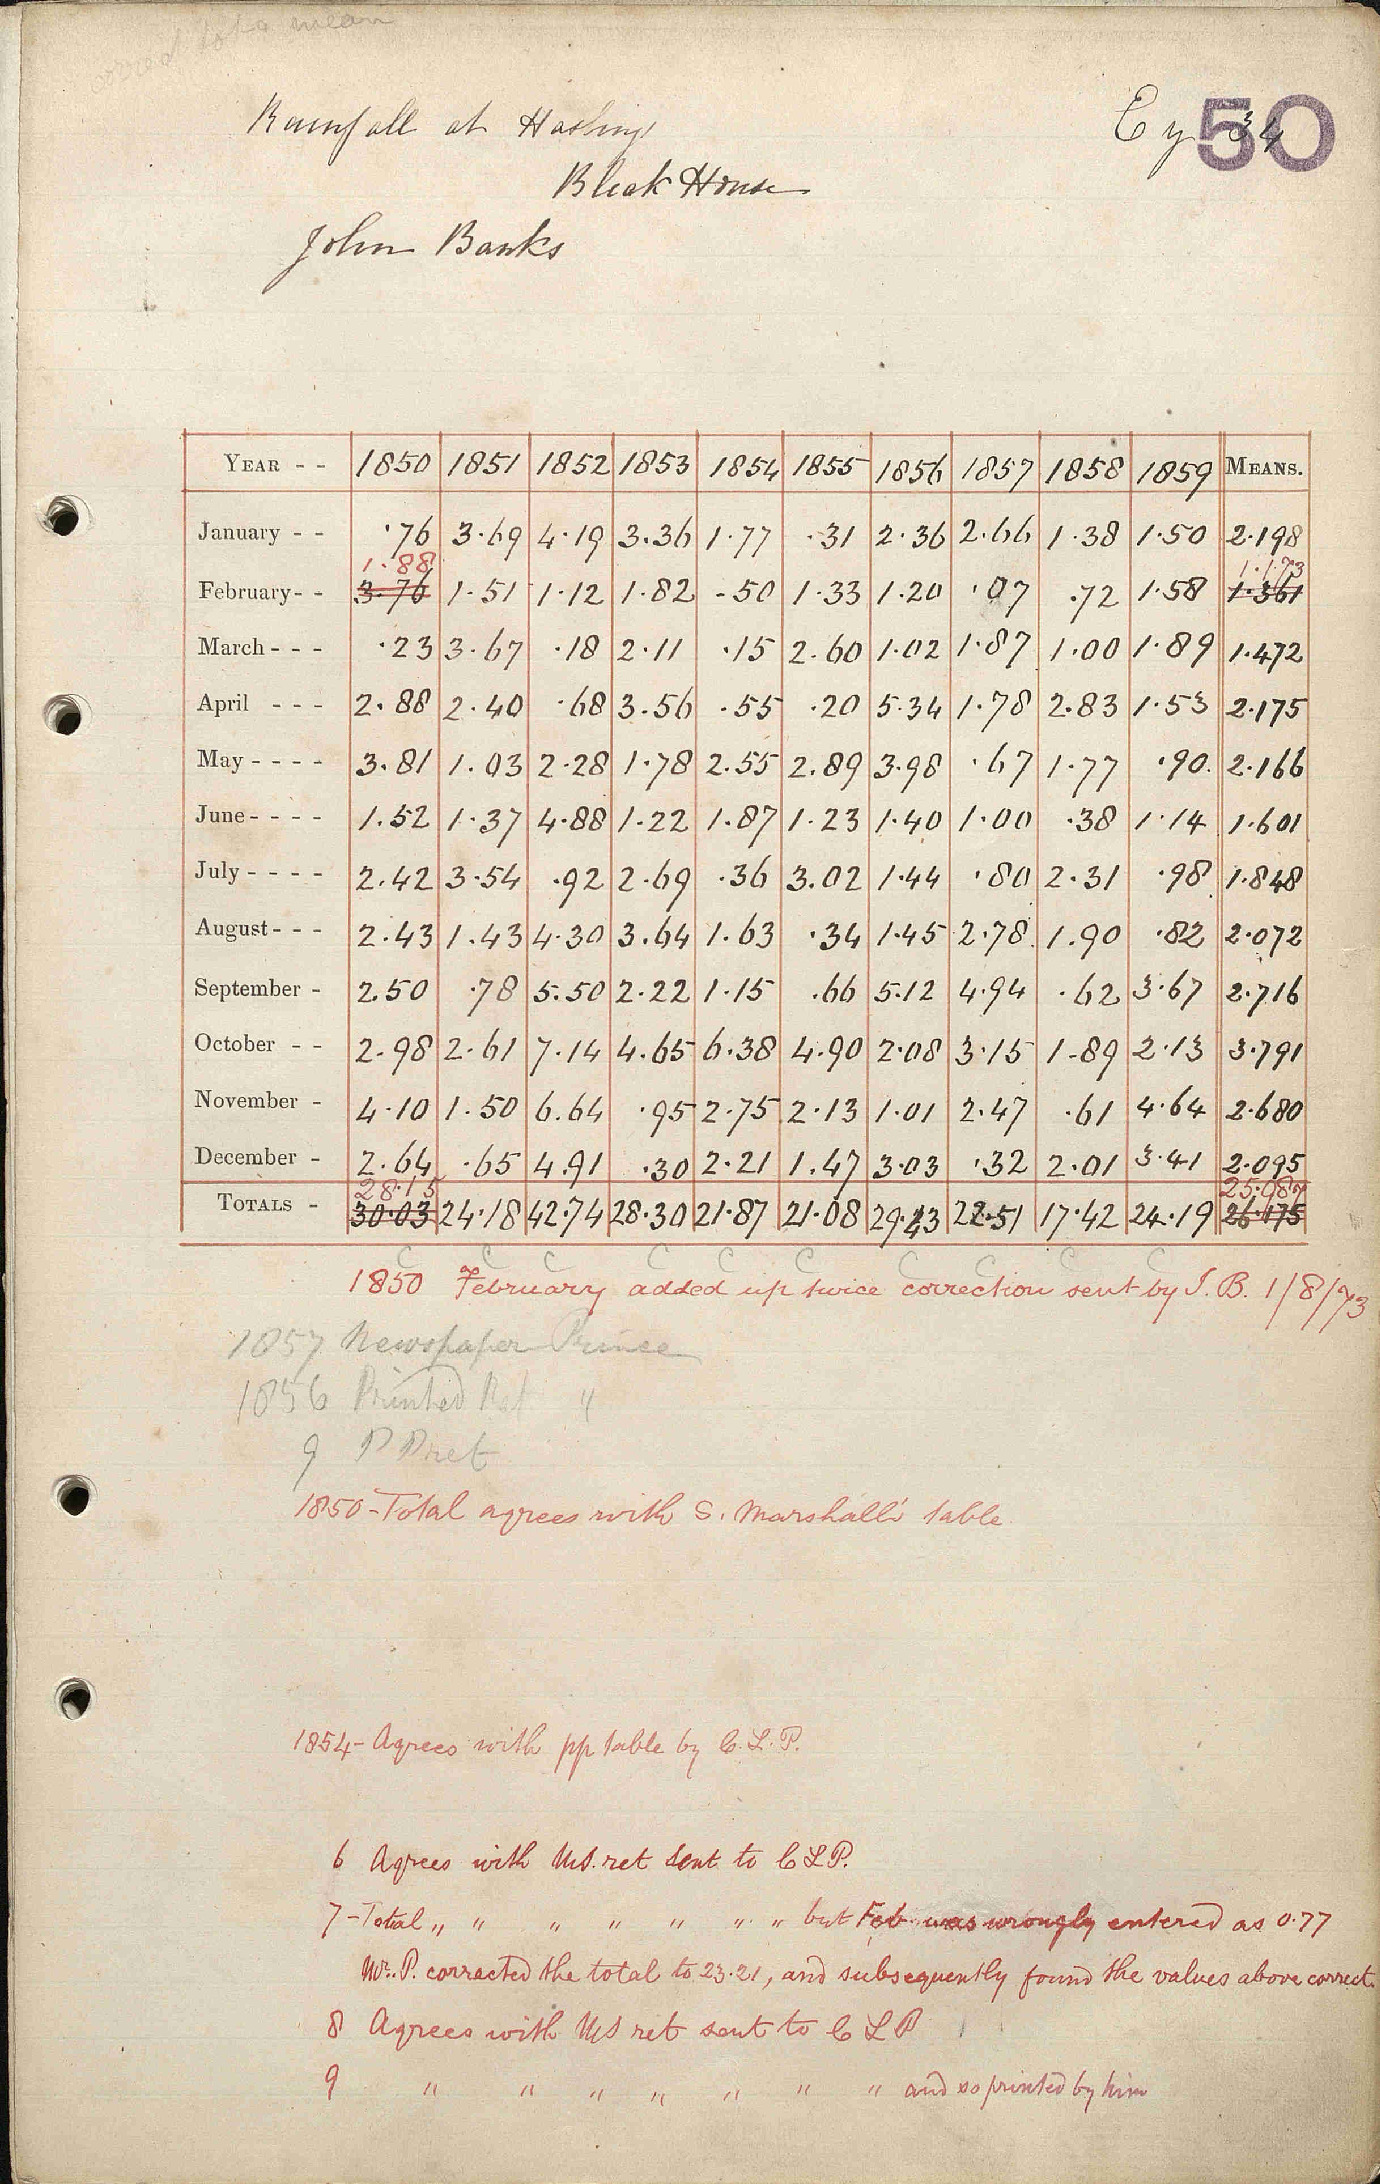 Rainfall at Hastings
Bleak House
John Banks
50
YEAR - - 1850 1851 1852 1853 1854 1855 1856 1857 1858 1859 MEANS.
January - - ·76 3·69 4·19 3·36 1·77 ·31 2·36 2·66 1·38 1·50 2·198
1·88 1·173
February- - 3·76 1·51 1·12 1·82 ·50 1·33 1·20 ·07 ·72 1·58 1·361
March - - - ·23 3·67 ·18 2·11 ·15 2·60 1·02 1·87 1·00 1·89 1·472
April - - - 2·88 2·40 ·68 3·56 ·55 ·20 5·34 1·78 2·83 1·53 2·175
May - - - - 3·81 1·03 2·28 1·78 2·55 2·89 3·98 ·67 1·77 ·90 2·166
June - - - - 1·52 1·37 4·88 1·22 1·87 1·23 1·40 1·00 ·38 1·14 1·601
July - - - - 2·42 3·54 ·92 2·69 ·36 3·02 1·44 ·80 2·31 ·98 1·848
August - - - 2·43 1·43 4·30 3·64 1·63 ·34 1·45 2·78 1·90 ·82 2·072
September - 2·50 ·78 5·50 2·22 1·15 ·66 5·12 4·94 ·62 3·67 2·716
October - - 2·98 2·61 7·14 4·65 6·38 4·90 2·08 3·15 1·89 2·13 3·791
November - 4·10 1·50 6·64 ·95 2·75 2·13 1·01 2·47 ·61 4·64 2·680
December - 2·64 ·65 4·91 ·30 2·21 1·47 3·03 ·32 2·01 3·41 2·095
28·15 25·987
TOTALS - 30·03 24·18 42·74 28·30 21·87 21·08 29·43 22·51 17·42 24·19 26·175
C C C C C C C C C
1850 February added up twice correction sent by J. B. 1/8/73
1857 Newspaper Prince
1856 Printed Ret "
9 P P ret
1850-Total agrees with S. Marshall's table
1854- Agrees with pp table by C. L. P.
6 Agrees with MS. ret sent to C L P.
7-Total " " " " " " " but Feb. was wrongly entered as 0·77
Mr. P. corrected the total to 23·21, and subsequently found the values above correct.
8 Agrees with MS ret sent to C L P
9 " " " " " " " and so printed by him